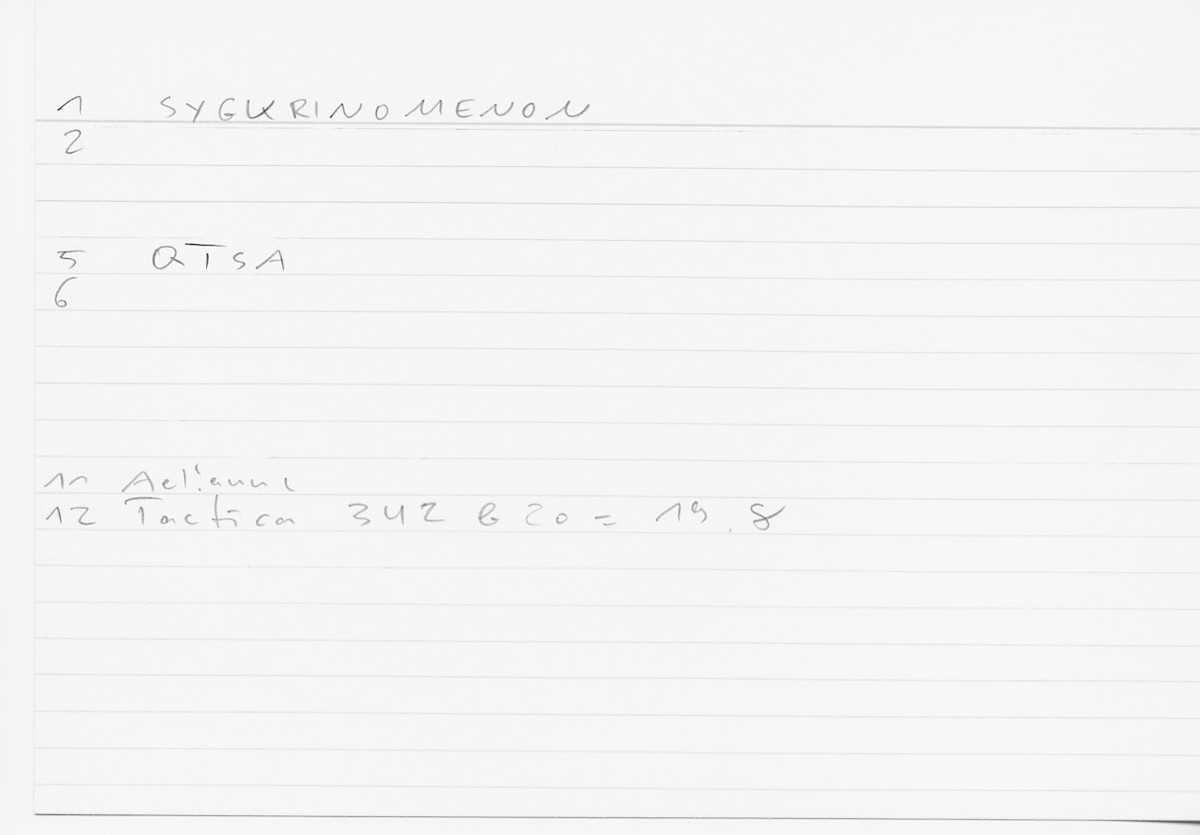 1 SYGKRINOMENON
2
5 QTSA
6
11 Aelianus
12 Tactica 342 b 20 = 19.8